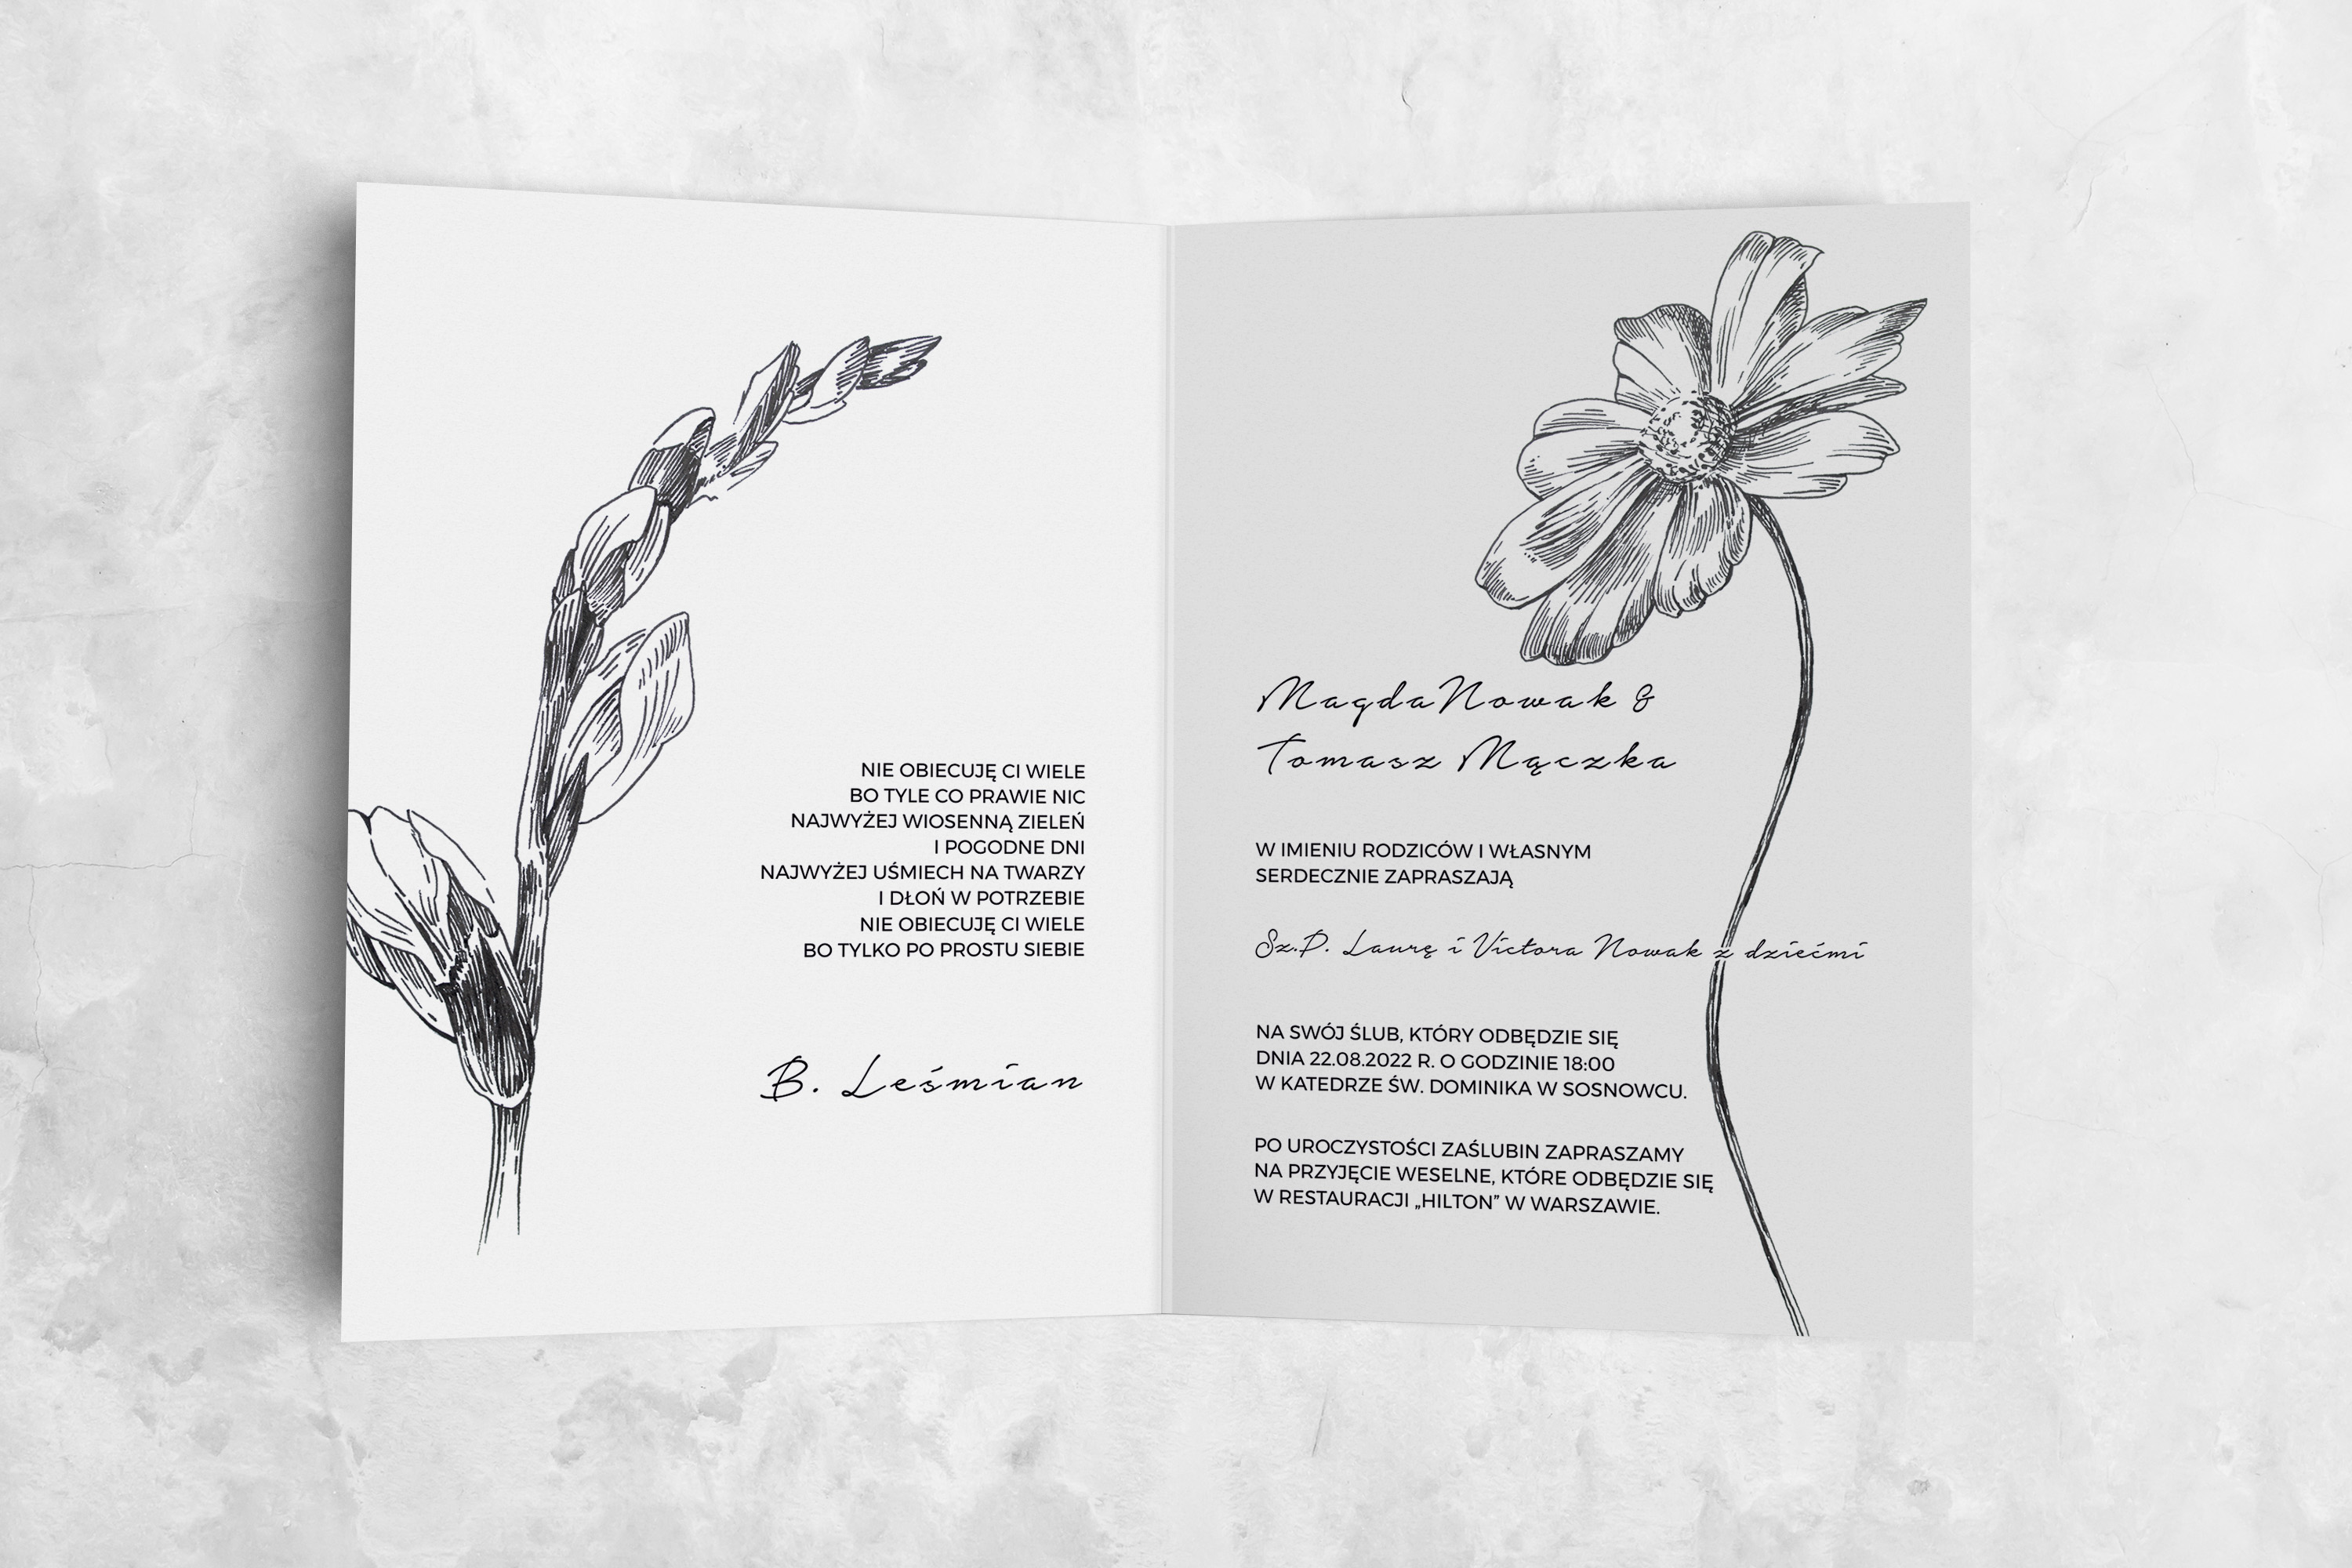 NIE OBIECUJĘ CI WIELE
BO TYLE CO PRAWIE NIC
NAJWYŻEJ WIOSENNĄ ZIELEŃ
I POGODNE DNI
NAJWYŻEJ UŚMIECH NA TWARZY
I DŁOŃ W POTRZEBIE
NIE OBIECUJĘ CI WIELE
BO TYLKO PO PROSTU SIEBIE
B. Leśmian
MagdaNowak &
Tomasz Mączka
W IMIENIU RODZICÓW I WŁASNYM
SERDECZNIE ZAPRASZAJĄ
Sz.P. Laurę i Victora Nowak z dziećmi
NA SWÓJ ŚLUB, KTÓRY ODBĘDZIE SIĘ
DNIA 22.08.2022 R. O GODZINIE 18:00
W KATEDRZE ŚW. DOMINIKA W SOSNOWCU.
PO UROCZYSTOŚCI ZAŚLUBIN ZAPRASZAMY
NA PRZYJĘCIE WESELNE, KTÓRE ODBĘDZIE SIĘ
W RESTAURACJI „HILTON” W WARSZAWIE.